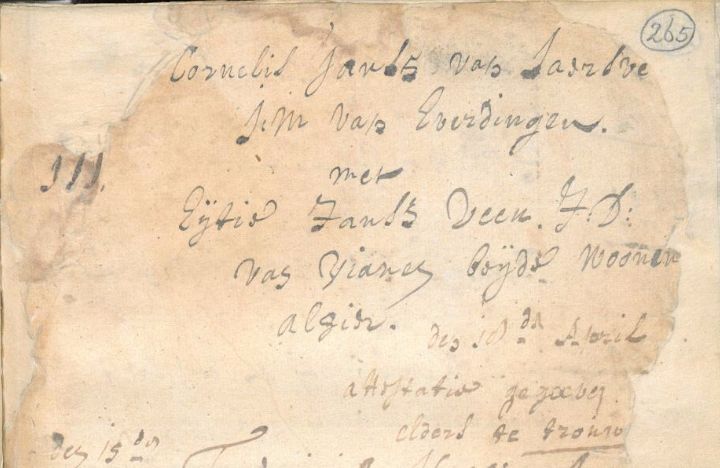 265
Cornelis Jansz van
J:M van Everdingen.
met
III.
Eÿtie Jansz Veen. J:D:
van Vianen beÿde Woonen
alhier.
den 18 den April
attestatie gegeeven
elders te trouw
den 15 den